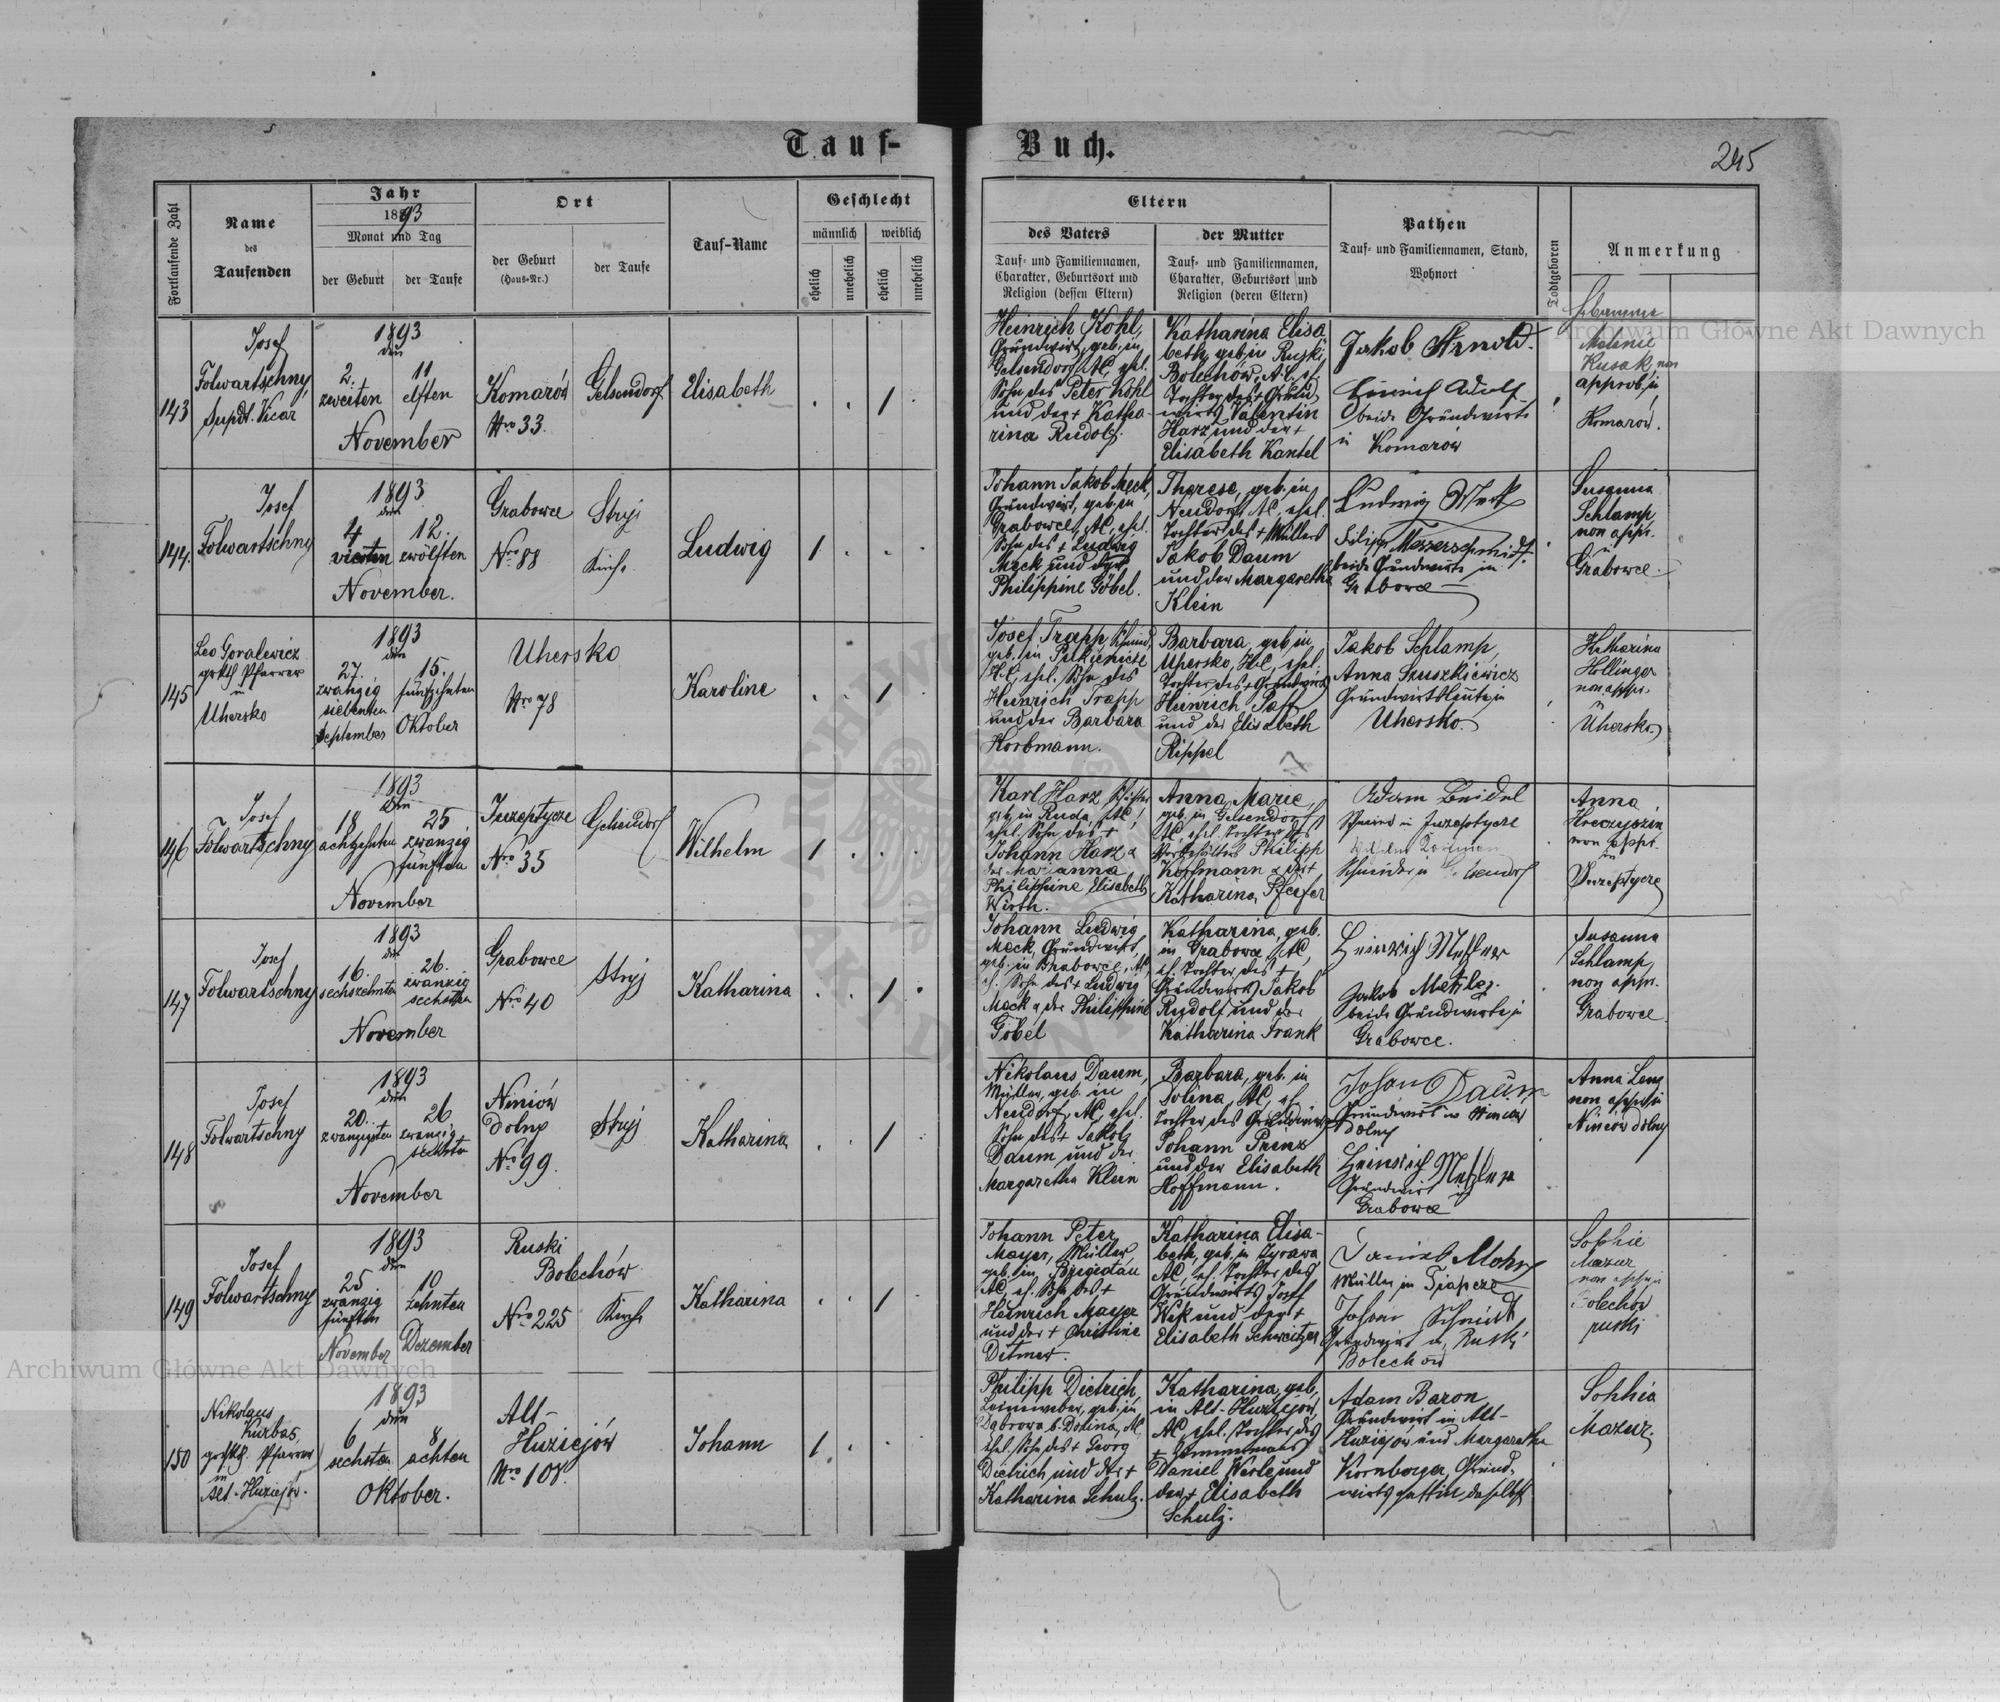 Tauf-
Buch.
245
Fortlaufende Zahl
Name
des
Taufenden
Jahr
1893
Monat und Tag
der Geburt
der Taufe
Ort
der Geburt
(Haus-Nr.)
der Taufe
Tauf-Name
Geschlecht
männlich
weiblich
ehelich
unehelich
ehelich
unehelich
Eltern
des Vaters
Tauf- und Familiennamen,
Charakter, Geburtsort und
Religion (dessen Eltern)
der Mutter
Tauf- und Familiennamen,
Charakter, Geburtsort und
Religion (deren Eltern)
Pathen
Tauf- und Familiennamen, Stand,
Wohnort
Todtgeboren
Anmerkung
Archiwum Główne Akt Dawnych
143
Josef
Folwartschny,
Supdt. Vicar
1893
den
2.
zweiten
11
elften
November
Komarów
Nro 33.
Gelsendorf
Elisabeth
Heinrich Kohl,
Grundwirt, geb. in
Gelsendorf, AC, ehel.
Sohn des Peter Kohl
und der + Katha-
rina Rudolf.
Katharina Elisa
beth, geb. in Ruski
Bolechów, A.C. eh.
Tochter des + Grund-
wirts Valentin
Harz und der +
Elisabeth Kantel
Jakob Arnold.
Heinrich Adolf
beide Grundwirte
in Komarów
Melanie
Kusak non
approb. in
Komarów.
144.
Josef
Folwartschny
1893
den
4
vierten
12.
zwölften
November.
Grabowce
Nro 88
Stryj
Kirche
Ludwig
Johann Jakob Meck,
Grundwirt, geb. in
Grabowce, AC, ehel.
Sohn des + Ludwig
Meck und der
Philippine Göbel.
Therese, geb. in
Neudorf, AC, ehel.
Tochter des + Müllers
Jakob Daum
und der Margaretha
Klein
Ludwig Meck
Filipp Messerschmidt.
beide Grundwirte in
Grabowce
Susanna
Schlamp
non appr.
in
Grabowce.
145
Leo Goralewicz
grkth Pfarrer
in
Uhersko
1893
den
27.
zwanzig
siebenten
September
15.
fünfzehnten
Oktober
Uhersko
Nro 78
Karoline
Josef Trapp, Schmied,
geb. in Pukienicze
H.C, ehel. Sohn des
Heinrich Trapp
und der Barbara
Korbmann.
Barbara, geb. in
Uhersko, HC, ehel.
Tochter des + Grundwirts
Heinrich Paff
und der Elisabeth
Rippel
Jakob Schlamp,
Anna Szuszkiewicz
Grundwirtsleute in
Uhersko.
Katharina
Hollinger
non appr.
in
Uhersko.
146
Josef
Folwartschny
1893
den
18
achtzehnten
25
zwanzig
fünften
November
Juzeptycze
Nro 35
Gelsendorf
Wilhelm
Karl Harz,
geb. in Ruda, AC,
ehel. Sohn des +
Johann Harz &
der Marianna
Philippine Elisabeth
Wirth.
Anna Marie,
geb. in Gelsendorf
AC, ehel. Tochter des
Philipp
Koffmann & der +
Katharina Pfeifer
Adam Beidel
Schmied in Juzeptycze
Schneider in Gelsendorf
Anna
Hreczyszin
non appr.
in
Juzeptycze
147
Josef
Folwartschny
1893
den
16.
sechszehnten
26.
zwanzig
sechsten
November
Grabowce
Nro 40
Stryj
Katharina
Johann Ludwig
Meck, Grundwirt,
geb. in Grabowce, AC,
eh. Sohn des + Ludwig
Meck & der Philippine
Göbel
Katharina, geb.
in Grabowce, AC,
eh. Tochter des +
Grundwirts Jakob
Rudolf und der
Katharina Frank
Heinrich Metzler
Jakob Metzler.
beide Grundwirte in
Grabowce.
Susanna
Schlamp,
non appr.
Grabowce.
148
Josef
Folwartschny
1893
den
20.
zwanzigsten
26
zwanzig
sechsten
November
Niniów
dolny
Nro 99.
Stryj
Katharina
Nikolaus Daum,
Müller, geb. in
Neudorf, AC, ehel.
Sohn des + Jakob
Daum und der
Margaretha Klein
Barbara, geb. in
Dolina, AC, eh.
Tochter des Grundwirts
Johann Prinz
und der Elisabeth
Hoffmann.
Johan Daum
Grundwirt in Niniów
dolny
Heinrich Metzler
Grundwirt in
Grabowce
Anna Lenz
non appr. in
Niniów dolny
149
Josef
Folwartschny
1893
den
25
zwanzig
fünften
November
10
zehnten
Dezember
Ruski
Bolechów
Nro 225
Kirche
Katharina
Johann Peter
Mayer, Müller,
geb. in Brigidau
AC, eh. Sohn des +
Heinrich Mayer
und der + Christine
Ditmer.
Katharina Elisa-
beth, geb. in Zyrawa
AC, eh. Tochter des
Grundwirts Josef
und der +
Elisabeth Schweitzer
Daniel Mohr
Müller in Tiapcze
Johann Schmidt
Grundwirt in Ruski
Bolechów
Sophie
Mazur
non appr. in
Bolechów
ruski
Archiwum Główne Akt Dawnych
150
Nikolaus
Kurbas,
grkth. Pfarrer
in
Alt-Huziejów.
1893
den
6
sechsten
8
achten
Oktober.
Alt-
Huziejów
Nro 108.
Johann
Philipp Dietrich,
Leineweber, geb. in
Dabrowa b. Dolina, AC,
ehel. Sohn des + Georg
Dietrich und der +
Katharina Schulz.
Katharina, geb.
in Alt-Huziejów,
AC, ehel. Tochter des
+ Zimmermanns
Daniel Werle und
der + Elisabeth
Schulz.
Adam Baron
Grundwirt in Alt-
Huziejów und Margaretha
Kornberger, Grund-
wirtsgattin daselbst
Sophia
Mazur.